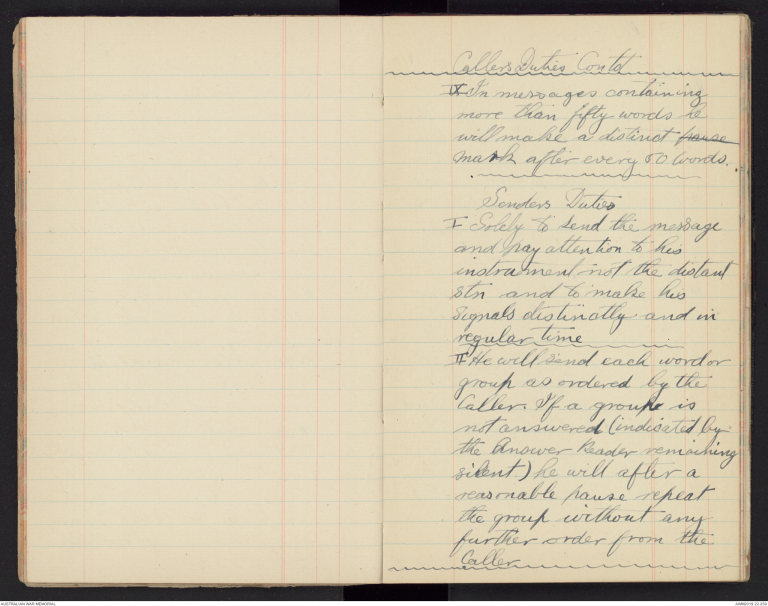 Callers Duties Contd
IX In messages containing
more than fifty words he
will make a distinct pause
mark after every 50 words.
Senders Duties
I Solely to send the message
and pay attention to his
instrument not the distant
stn and to make his
signals distinctly and in
regular time
II He will send each word or
group as ordered by the
Caller. If a group is
not answered (indicated by
the Answer Reader remaining
silent) he will after a
reasonable pause repeat
the group without any
further order from the
Caller
AUSTRALIAN WAR MEMORIAL